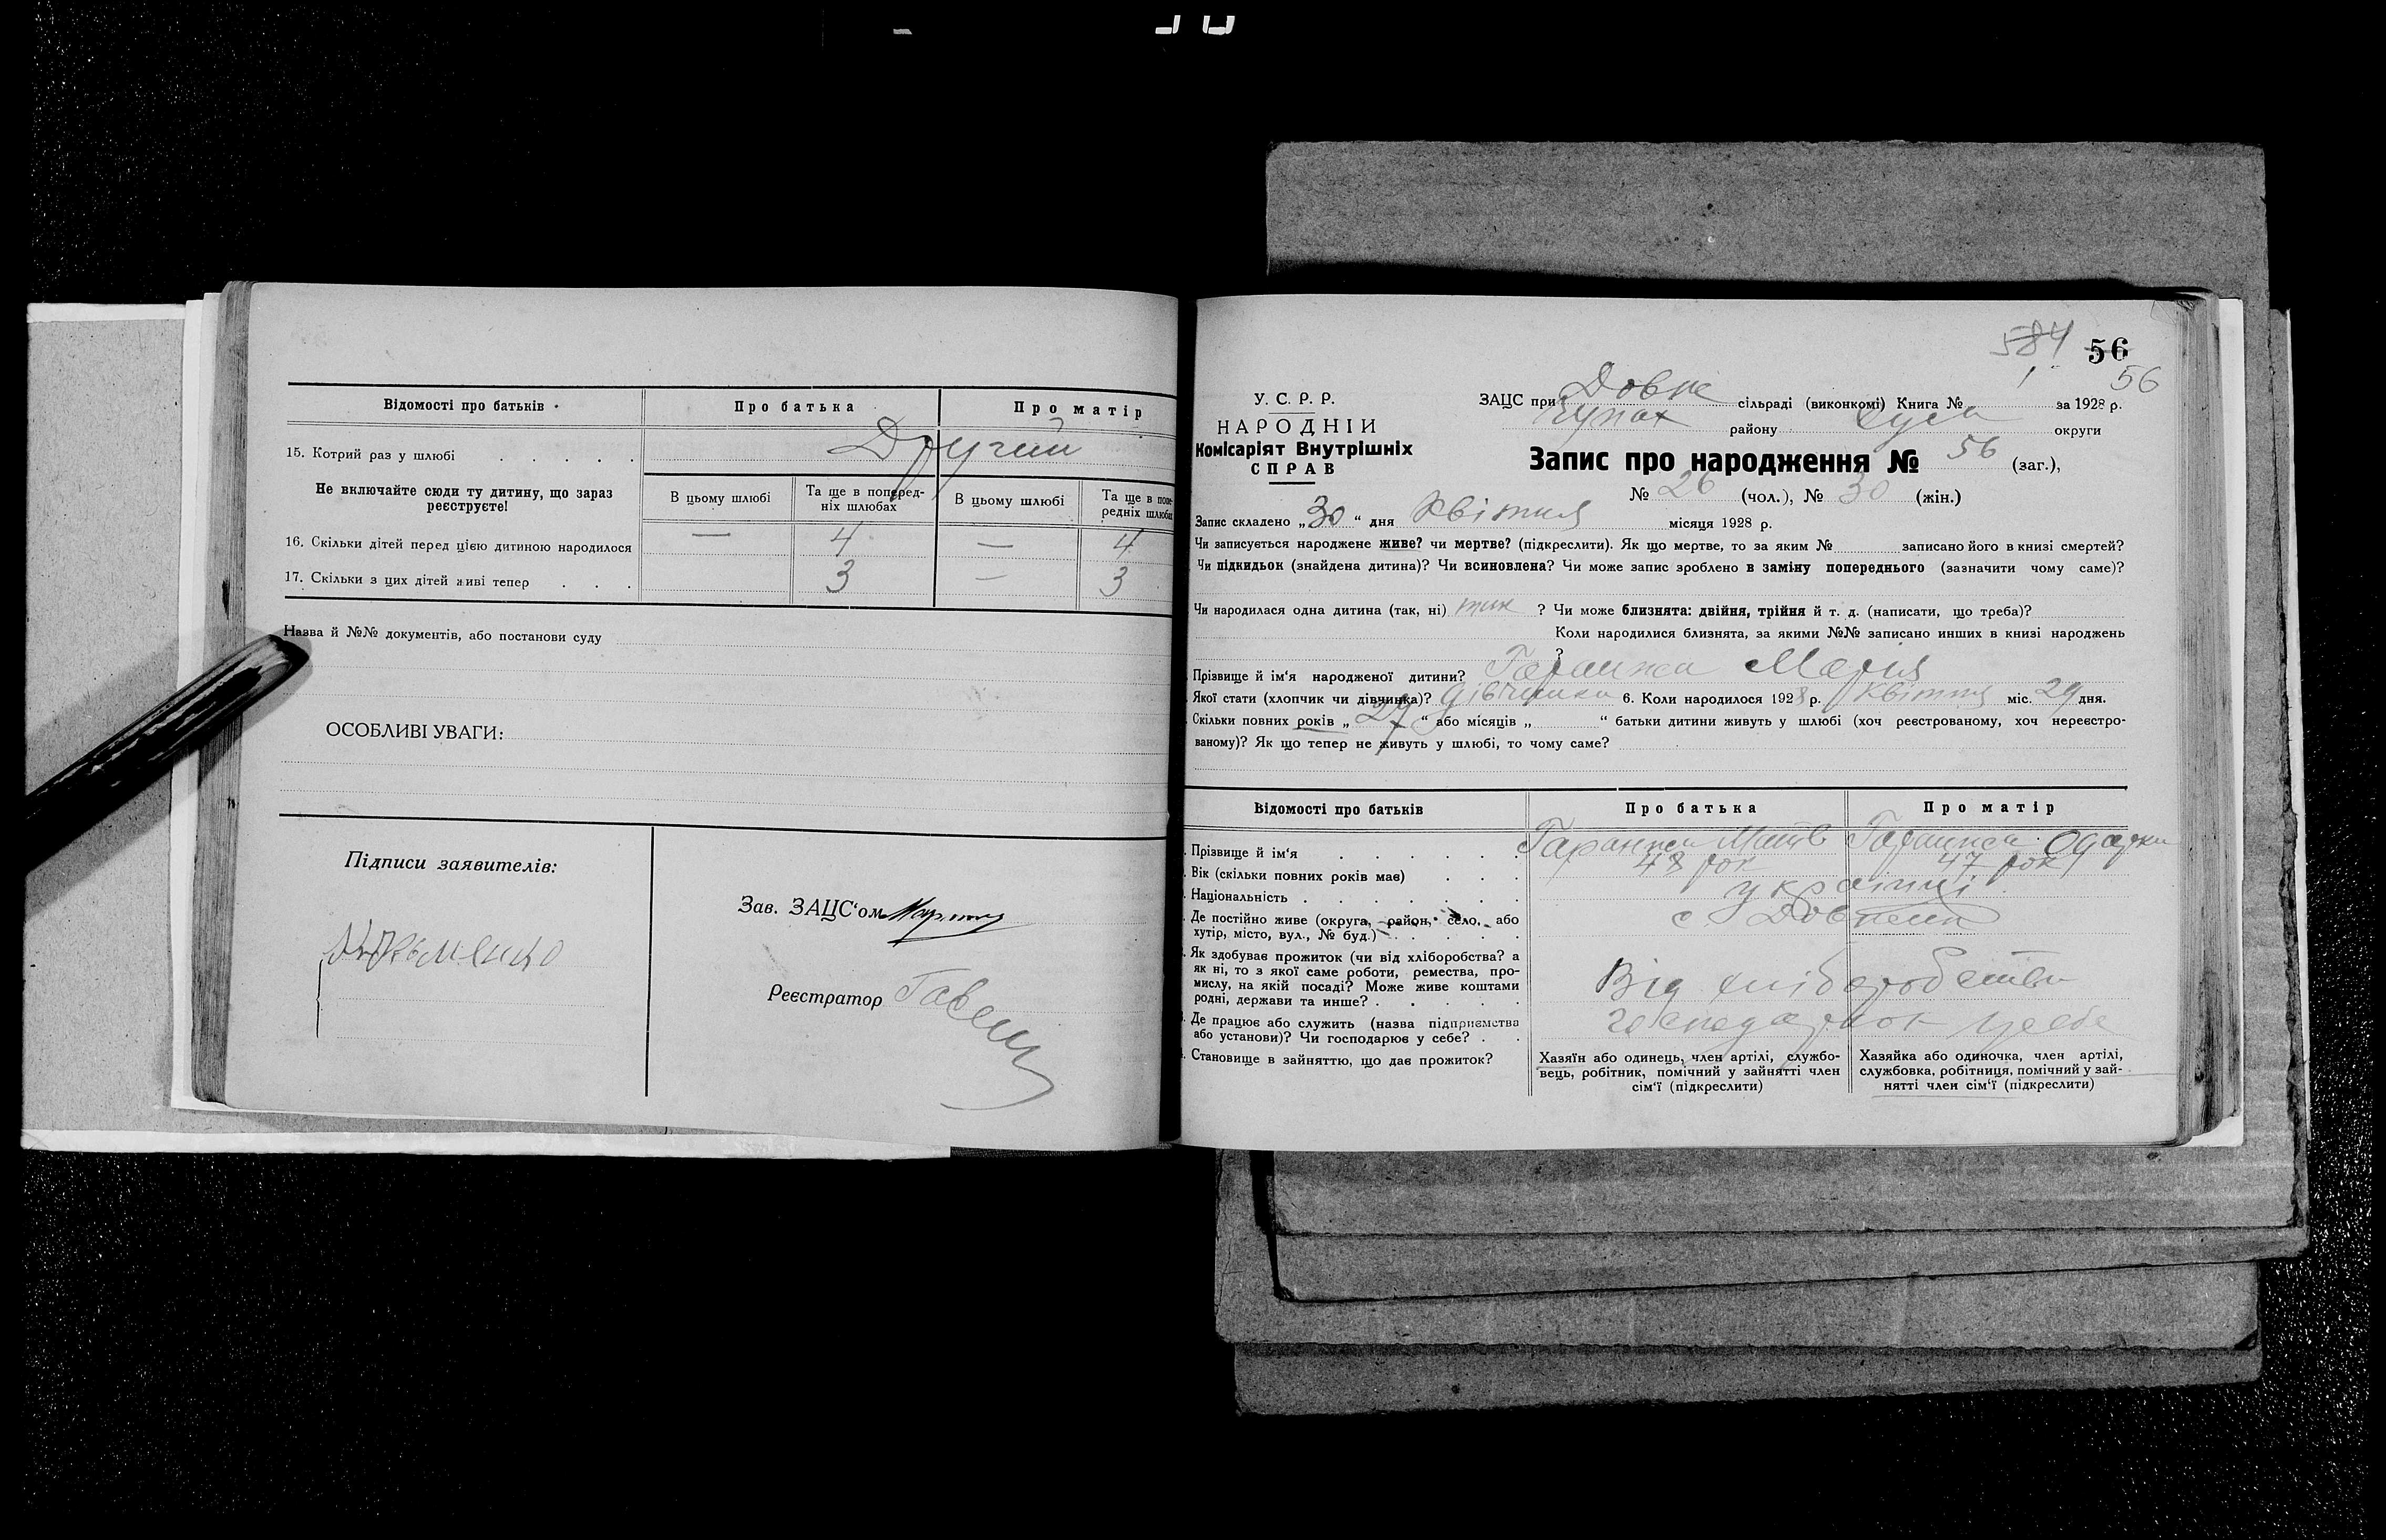 Відомості про батьків
Про батька
Про матір
15. Котрий раз у шлюбі
Другий
Не включайте сюди ту дитину, що зараз реєструєте!
В цьому шлюбі
Та ще в попередніх шлюбах
В цьому шлюбі
Та ще в попередніх шлюбах
16. Скільки дітей перед цією дитиною народилося — 4 — 4
17. Скільки з цих дітей живі тепер 3 — 3
Назва й №№ документів, або постанови суду
ОСОБЛИВІ УВАГИ:
Підписи заявителів:
Зав. ЗАЦС'ом
Реєстратор
584 56
1 56
У. С. Р. Р.
НАРОДНІЙ
Комісаріят Внутрішніх
СПРАВ
ЗАЦС при Довж сільраді (виконкомі) Книга № за 1928 р.
району Сум округи
Запис про народження № 56 (заг.),
№ 26 (чол.), № 30 (жін.)
Запис складено „30“ дня Квітня місяця 1928 р.
Чи записується народжене живе? чи мертве? (підкреслити). Як що мертве, то за яким № записано його в книзі смертей?
Чи підкидьок (знайдена дитина)? Чи всиновлена? Чи може запис зроблено в заміну попереднього (зазначити чому саме)?
Чи народилася одна дитина (так, ні) так ? Чи може близнята: двійня, трійня й т. д. (написати, що треба)?
Коли народилися близнята, за якими №№ записано инших в книзі народжень
?
Прізвище й ім'я народженої дитини? Гаранжа Марія
Якої стати (хлопчик чи дівчинка)? дівчинка 6. Коли народилося 1928 р. Квітня міс. 29 дня.
Скільки повних років „29“ або місяців „ “ батьки дитини живуть у шлюбі (хоч реєстрованому, хоч нереєстро-
ваному)? Як що тепер не живуть у шлюбі, то чому саме?
Відомості про батьків
Про батька
Про матір
Прізвище й ім'я Гаранжа Матв Гаранжа Одарка
Вік (скільки повних років має) 48 рок 47 рок
Національність українці
Де постійно живе (округа, район, село, або
хутір, місто, вул., № буд.)
с. Довжени
Як здобуває прожиток (чи від хліборобства? а
як ні, то з якої саме роботи, ремества, про-
мислу, на якій посаді? Може живе коштами
родні, держави та инше?
Від хліборобства
Де працює або служить (назва підприємства
або установи)? Чи господарює у себе?
господарюют у себе
Становище в зайняттю, що дає прожиток?
Хазяїн або одинець, член артілі, службо-
вець, робітник, помічний у зайнятті член
сім'ї (підкреслити)
Хазяйка або одиночка, член артілі,
службовка, робітниця, помічний у зай-
нятті член сім'ї (підкреслити)